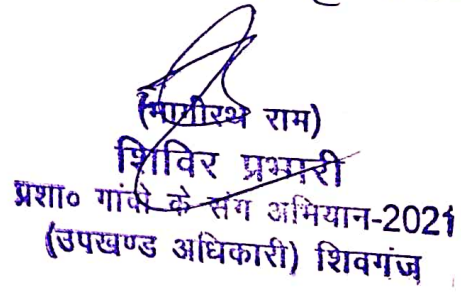 (भागीरथ राम)
शिविर प्रभारी
प्रशा० गांवो के संग अभियान-2021
(उपखण्ड अधिकारी) शिवगंज